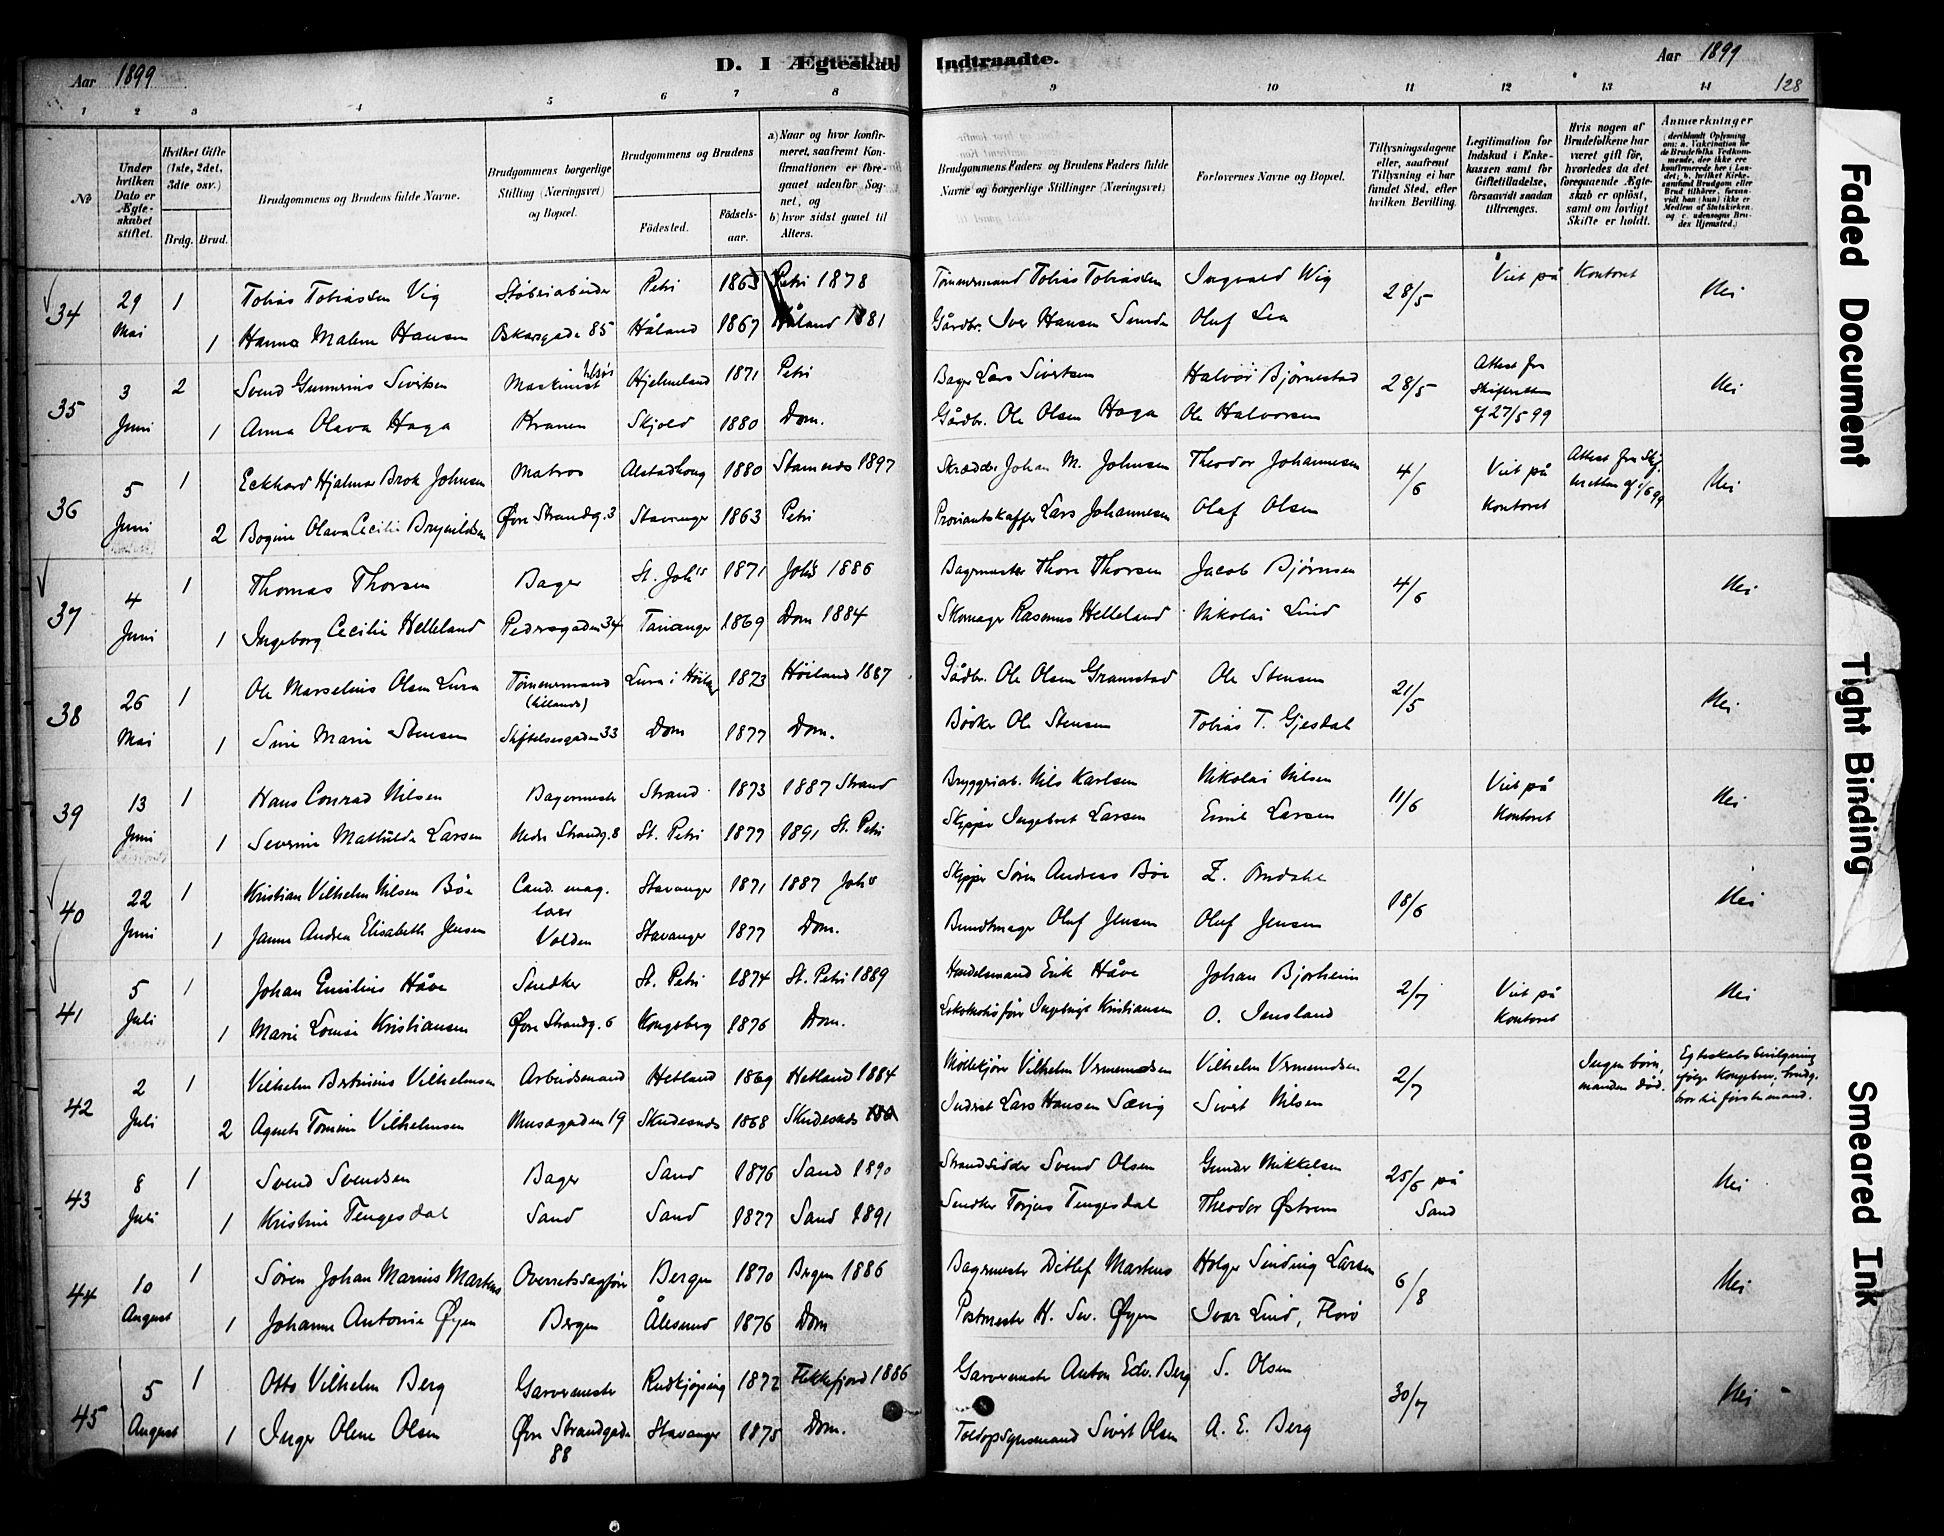 Aar 1899 D. I Ægteskab Indtraadte. Aar 1899
128
1 2 3 4 5 6 7 8 9 10 11 12 13 14
No
Under hvilken Dato er Ægteskabet stiftet.
Hvilket Gifte (1ste, 2det, 3dte osv.)
Brdg. Brud.
Brudgommens og Brudens fulde Navne.
Brudgommens borgerlige Stilling (Næringsvei) og Bopæl.
Brudgommens og Brudens
Fødested. Fødselsaar.
a) Naar og hvor konfirmeret, saafremt Konfirmationen er foregaaet udenfor Sognet, og
b) hvor sidst gaaet til Alters.
Brudgommens Faders og Brudens Faders fulde Navne og borgerlige Stillinger (Næringsvei)
Forlovernes Navne og Bopæl.
Tillysningsdagene eller, saafremt Tillysning ei har fundet Sted, efter hvilken Bevilling.
Legitimation for Indskud i Enkekassen samt for Giftetilladelse, forsaavidt saadan tiltrænges.
Hvis nogen af Brudefolkene har været gift før, hvorledes da det foregaaende Ægteskab er opløst, samt om lovligt Skifte er holdt.
Anmærkninger (deriblandt Oplysning om: a. Vakcination for de Brudefolks Vedkommende, der ikke ere konfirmerede her i Landet; b. hvilket Kirkesamfund Brudgom eller Brud tilhører, forsaavidt han (hun) ikke er Medlem af Statskirken, og c. udensogns Brudes Hjemsted.)
34 29 Mai 1 Tobias Tobiassen Vig Støberiarbeider Petri 1863 Petri 1878 Tømmermand Tobias Tobiassen Ingvald Wig 28/5 Viet på Kontoret Nei
1 Hanna Malene Hansen Oskarsgade 85 Håland 1867 Håland 1881 Gårdbr. Iver Hansen Oluf Lea
35 3 Juni 2 Svend Gunnerius Sivertsen Maskinist Hjelmeland 1871 Petri Bager Lars Sivertsen Halvor Bjørnestad 28/5 Attest fra Skifteretten af 27/5 99 Nei
1 Anna Olava Haga Kranen Skjold 1880 Dom. Gårdbr. Ole Olsen Haga Ole Halvorsen
36 5 Juni 1 Eckhard Hjalmar Brok Johnsen Matros Alstadhoug 1880 Stamnæs 1897 Skrædder Johan M. Johnsen Theodor Johannesen 4/6 Viet på Kontoret Attest fra Skifteretten af 1/6 99 Nei
2 Bogine Olava Cecilie Brynildsen Øvre Strandg. 3 Stavanger 1863 Petri Proviantskaffer Lars Johannesen Olaf Olsen
37 4 Juni 1 Thomas Thorsen Bager St. Johs 1871 Johs 1886 Bagermester Thore Thorsen Jacob Bjørnsen 4/6 Nei
1 Ingeborg Cecilie Helleland Pedersgaden 34 Tananger 1869 Dom 1884 Skomager Rasmus Helleland Nikolai Lind
38 26 Mai 1 Ole Marselius Olsen Lura Tømmermand Lura i Høiland 1873 Høiland 1887 Gådbr. Ole Olsen Gramstad Ole Stensen 21/5 Nei
1 Sine Marie Stensen Stiftelsesgaden 33 Dom 1877 Dom. Bødker Ole Stensen Tobias T. Gjesdal
39 13 Juni 1 Hans Conrad Nilsen Bagermester Strand 1873 1887 Strand Bryggeriarb. Nils Karlsen Nikolai Nilsen 11/6 Viet på Kontoret Nei
1 Severine Mathilde Larsen Nedre Strandg. 8 St. Petri 1877 1891 St. Petri Skipper Ingebret Larsen Emil Larsen
40 22 Juni 1 Kristian Vilhelm Nilsen Bøe Cand. mag. Stavanger 1871 1887 Johs Skipper Søren Andreas Bøe Z. Omdahl 18/6 Nei
1 Janna Andrea Elisabeth Jensen Volden Stavanger 1877 Dom. Bundtmager Oluf Jensen Oluf Jensen
41 5 Juli 1 Johan Emilius Håve Snedker St. Petri 1874 St. Petri 1889 Handelsmand Erik Håve Johan Bjorheim 2/7 Viet på Kontoret Nei
1 Marie Louise Kristiansen Øvre Strandg. 6 Kongsberg 1876 Dom. Lokomotivfører Ingebrigt Kristiansen O. Jensland
42 2 Juli 1 Vilhelm Bertinius Vilhelmsen Arbeidsmand Hetland 1869 Hetland 1884 Mødekjører Vilhelm Vermundsen Vilhelm Vermundsen 2/7 Ingen børn, manden død. Egteskabsbevilgning ifølge Kongebrev; brudg. bror til første mand.
2 Agnete Tomine Vilhelmsen Musegaden 19 Skudesnæs 1868 Skudesnæs Inderst Lars Hansen Sævig Sivert Nilsen
43 8 Juli 1 Svend Svendsen Bager Sand 1876 Sand 1890 Strandsidder Svend Olsen Gunder Mikkelsen 25/6 på Sand Nei
1 Kristine Tengesdal Sand Sand 1877 Sand 1891 Snedker Torjus Tengesdal Theodor Østrem
44 10 August 1 Søren Johan Marius Martens Overretssagfører Bergen 1870 Bergen 1886 Bagermester Ditlef Martens Holger Sinding Larsen 6/8 Nei
1 Johanne Antonie Øyen Bergen Ålesund 1876 Dom Postmester H. Sev. Øyen Ivar Lind, Florø
45 5 August 1 Otto Vilhelm Berg Garvermester Rudkjøping 1872 Flekkefjord 1886 Garvermester Anton Edv. Berg S. Olsen 30/7 Nei
1 Inger Olene Olsen Øvre Strandgade 88 Stavanger 1875 Dom. Toldopsynsmand Sivert Olsen A. E. Berg
Faded Document
Tight Binding
Smeared Ink